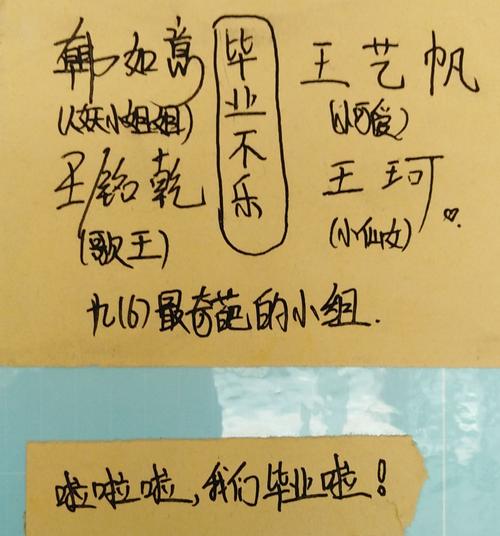 韩如意
(人妖小姐姐)
王铭乾
(歌王)
毕业不乐
王艺帆
(小可爱)
王珂
(小仙女)
九(6)最奇葩的小组.
啦啦啦,我们毕业啦!